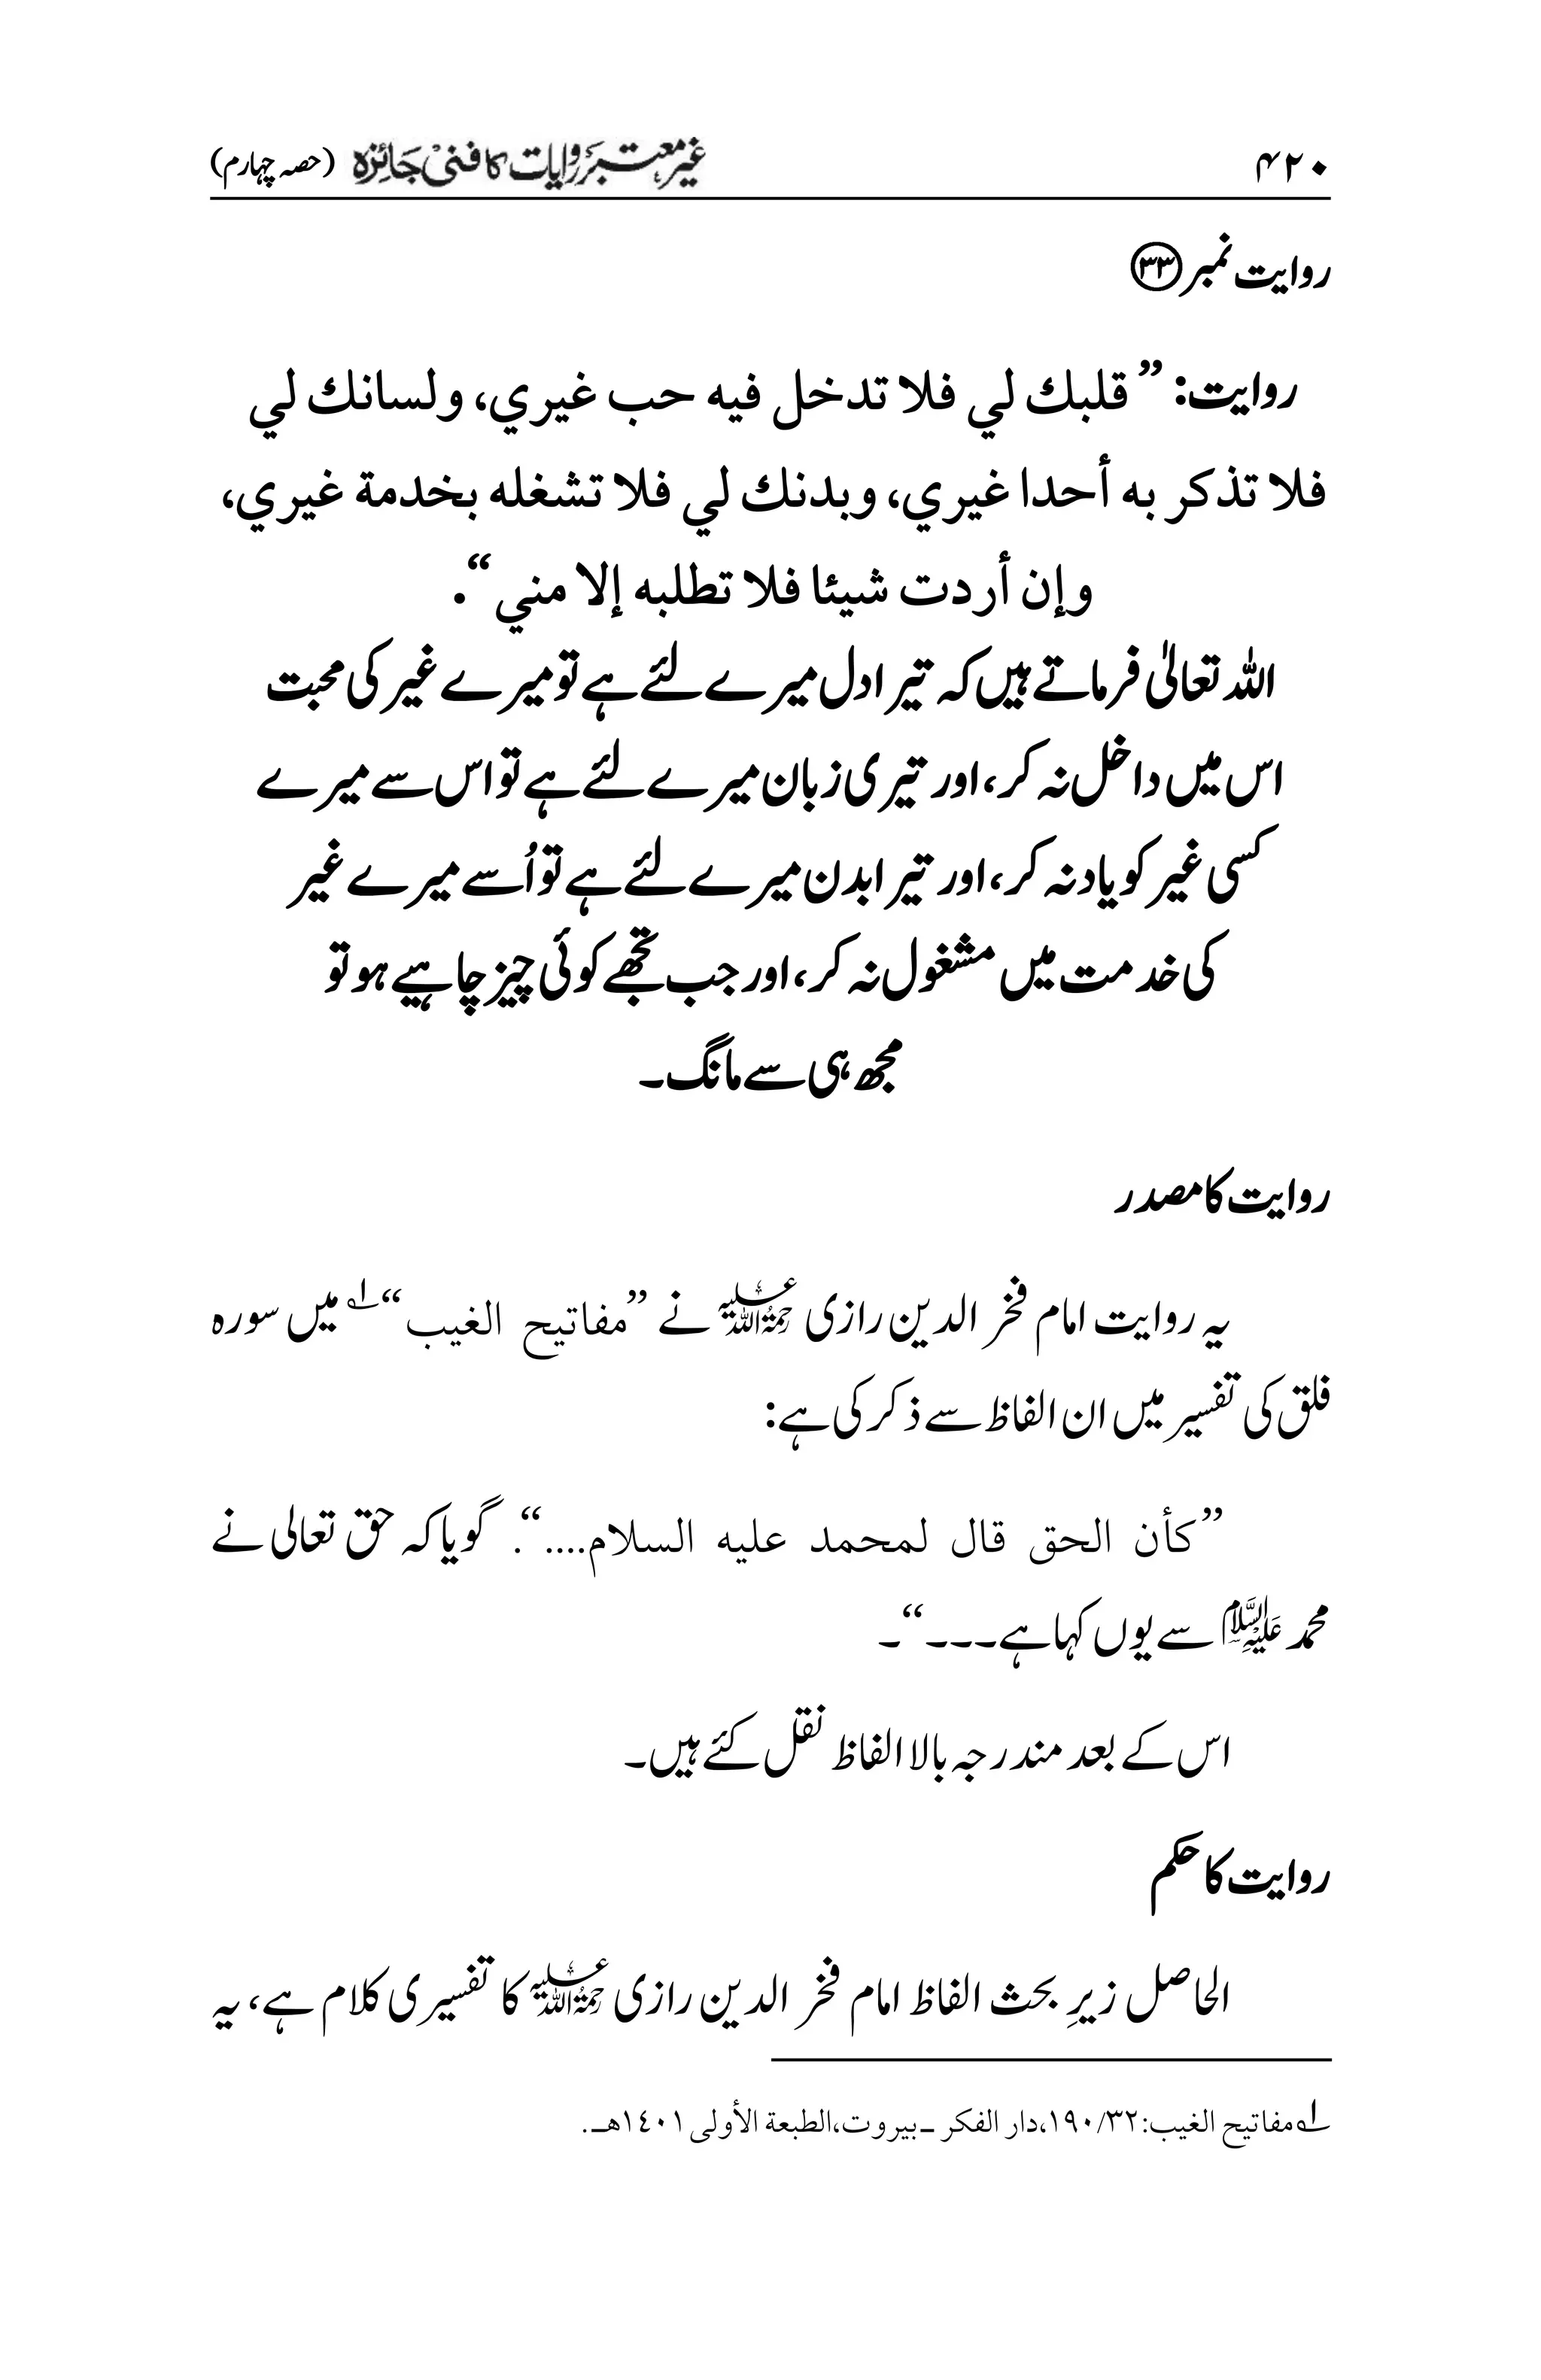 ۴۲۰ غیر معتبر روایات کا فنی جائزہ (حصہ چہارم)
روایت نمبر ۳۳
روایت: ”قلبك لي فلا تدخل فيه حب غيري، ولسانك لي
فلا تذكر به أحدا غيري، وبدنك لي فلا تشغله بخدمة غيري،
وإن أردت شيئا فلا تطلبه إلا مني“.
اللہ تعالیٰ فرماتے ہیں کہ تیرا دل میرے لئے ہے تو میرے غیر کی محبت
اس میں داخل نہ کر، اور تیری زبان میرے لئے ہے تو اس سے میرے
کسی غیر کو یاد نہ کر، اور تیرا بدن میرے لئے ہے تو اُسے میرے غیر
کی خدمت میں مشغول نہ کر، اور جب تجھے کوئی چیز چاہیے ہو تو
مجھ ہی سے مانگ۔
روایت کا مصدر
یہ روایت امام فخر الدین رازی رحمۃ اللہ علیہ نے ”مفاتیح الغیب“ لہ میں سورہ
فلق کی تفسیر میں ان الفاظ سے ذکر کی ہے:
”كأن الحق قال لمحمد عليه السلام....“. گویا کہ حق تعالی نے
محمد علیہ السلام سے یوں کہا ہے۔۔۔“۔
اس کے بعد مندرجہ بالا الفاظ نقل کئے ہیں۔
روایت کا حکم
الحاصل زیرِ بحث الفاظ امام فخر الدین رازی رحمۃ اللہ علیہ کا تفسیری کلام ہے، یہ
لہ مفاتيح الغيب: ۱۹۰/۳۲، دار الفكر ـ بيروت، الطبعة الأولى ١٤٠١هـ.